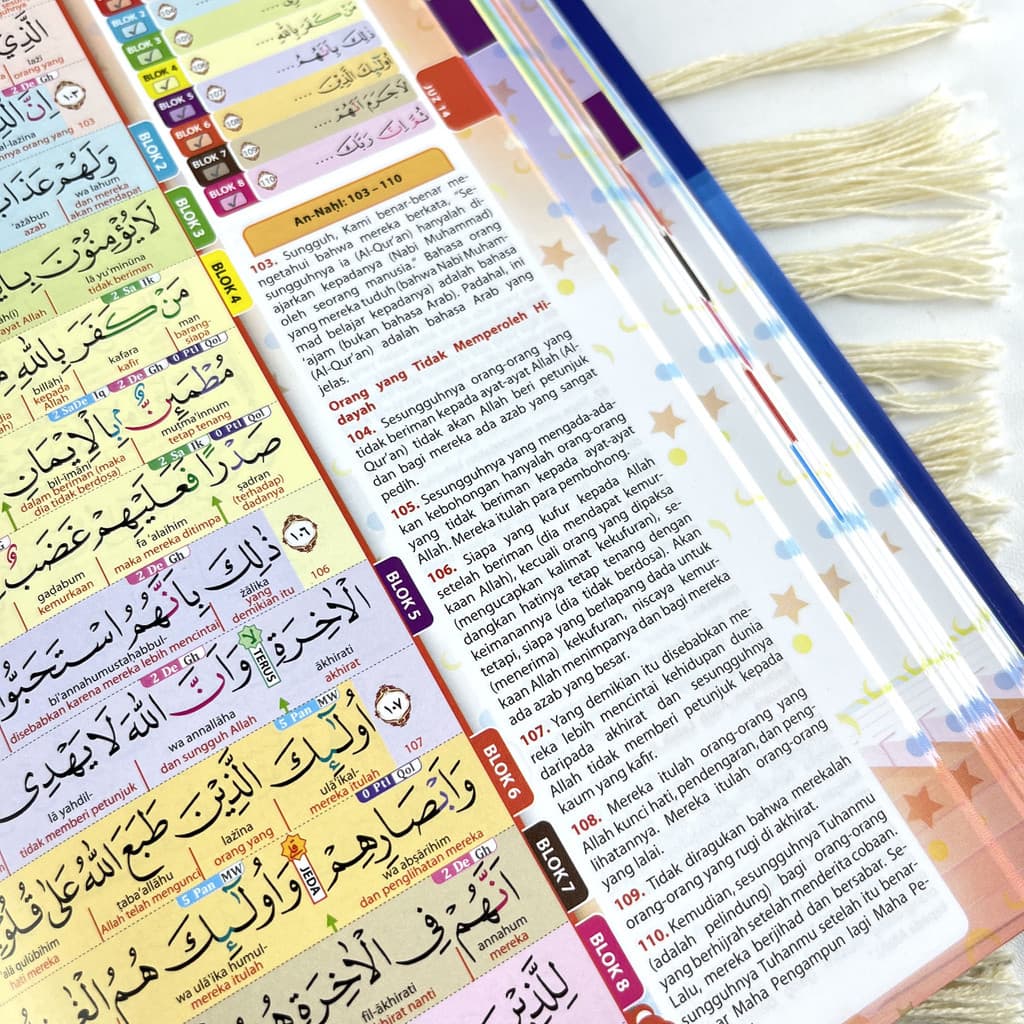 BLOK 2
BLOK 3
BLOK 4
BLOK 5
BLOK 6
BLOK 7
BLOK 8
مَنْ كَفَرَ بِاللّٰهِ ....
ذٰلِكَ بِاَنَّهُمُ ....
اُولٰۤىِٕكَ الَّذِيْنَ ....
لَا جَرَمَ اَنَّهُمْ ....
ثُمَّ اِنَّ رَبَّكَ ....
106
107
108
109
110
An-Naḥl: 103 – 110
103. Sungguh, Kami benar-benar me-
ngetahui bahwa mereka berkata, “Se-
sungguhnya ia (Al-Qur’an) hanyalah di-
ajarkan kepadanya (Nabi Muhammad)
oleh seorang manusia.” Bahasa orang
yang mereka tuduh (bahwa Nabi Muham-
mad belajar kepadanya) adalah bahasa
‘ajam (bukan bahasa Arab). Padahal, ini
(Al-Qur’an) adalah bahasa Arab yang
jelas.
Orang yang Tidak Memperoleh Hi-
dayah
104. Sesungguhnya orang-orang yang
tidak beriman kepada ayat-ayat Allah (Al-
Qur’an) tidak akan Allah beri petunjuk
dan bagi mereka ada azab yang sangat
pedih.
105. Sesungguhnya yang mengada-ada-
kan kebohongan hanyalah orang-orang
yang tidak beriman kepada ayat-ayat
Allah. Mereka itulah para pembohong.
106. Siapa yang kufur kepada Allah
setelah beriman (dia mendapat kemur-
kaan Allah), kecuali orang yang dipaksa
(mengucapkan kalimat kekufuran), se-
dangkan hatinya tetap tenang dengan
keimanannya (dia tidak berdosa). Akan
tetapi, siapa yang berlapang dada untuk
(menerima) kekufuran, niscaya kemur-
kaan Allah menimpanya dan bagi mereka
ada azab yang besar.
107. Yang demikian itu disebabkan me-
reka lebih mencintai kehidupan dunia
daripada akhirat dan sesungguhnya
Allah tidak memberi petunjuk kepada
kaum yang kafir.
108. Mereka itulah orang-orang yang
Allah kunci hati, pendengaran, dan peng-
lihatannya. Mereka itulah orang-orang
yang lalai.
109. Tidak diragukan bahwa merekalah
orang-orang yang rugi di akhirat.
110. Kemudian, sesungguhnya Tuhanmu
(adalah pelindung) bagi orang-orang
yang berhijrah setelah menderita cobaan.
Lalu, mereka berjihad dan bersabar. Se-
sungguhnya Tuhanmu setelah itu benar-
ar Maha Pengampun lagi Maha Pe-
JUZ 14
الَّذِيْ
lażī
orang yang
2 De Gh
103
BLOK 2
وَلَهُمْ عَذَابٌ
‘ażābun
azab
wa lahum
dan mereka
akan mendapat
BLOK 3
لَا يُؤْمِنُوْنَ
lā yu’minūna
tidak beriman
2 Sa Ik
BLOK 4
مَنْ كَفَرَ بِاللّٰهِ
billāhi
kepada
Allah
kafara
kafir
man
barang-
siapa
2 SaDe Iq
2 De Gh
0 Ptl Qol
مُطْمَىِٕنٌّۢ بِالْاِيْمَانِ
bil-īmāni
dalam beriman (maka
dia tidak berdosa)
muṭma’innum
tetap tenang
2 Sa Ik
0 Ptl Qol
صَدْرًا فَعَلَيْهِمْ غَضَبٌ
gaḍabum
kemurkaan
fa ‘alaihim
maka mereka ditimpa
ṣadran
(terhadap
dadanya
2 De Gh
١٠٦
106
ذٰلِكَ بِاَنَّهُمُ اسْتَحَبُّوا
bi’annahumustaḥabbul-
disebabkan karena mereka lebih mencintai
żālika
yang
demikian itu
BLOK 5
2 De Gh
TERUS
الْاٰخِرَةِۙ وَاَنَّ اللّٰهَ لَا يَهْدِى
lā yahdil-
tidak memberi petunjuk
wa annallāha
dan sungguh Allah
ākhirati
akhirat
5 Pan MW
١٠٧
107
اُولٰۤىِٕكَ الَّذِيْنَ طَبَعَ اللّٰهُ عَلٰى
‘alā qulūbihim
hati mereka
ṭaba‘allāhu
Allah telah mengunci
lażīna
orang yang
ulā’ikal-
mereka itulah
BLOK 6
5 Pan MW
JEDA
0 Ptl Qol
وَاَبْصَارِهِمْۚ وَاُولٰۤىِٕكَ هُمُ
wa ulā’ika humul-
mereka itulah
wa abṣārihim
dan penglihatan mereka
2 De Gh
BLOK 7
اَنَّهُمْ فِى الْاٰخِرَةِ
fil-ākhirati
annahum
mereka
BLOK 8
لِلَّذِيْنَ